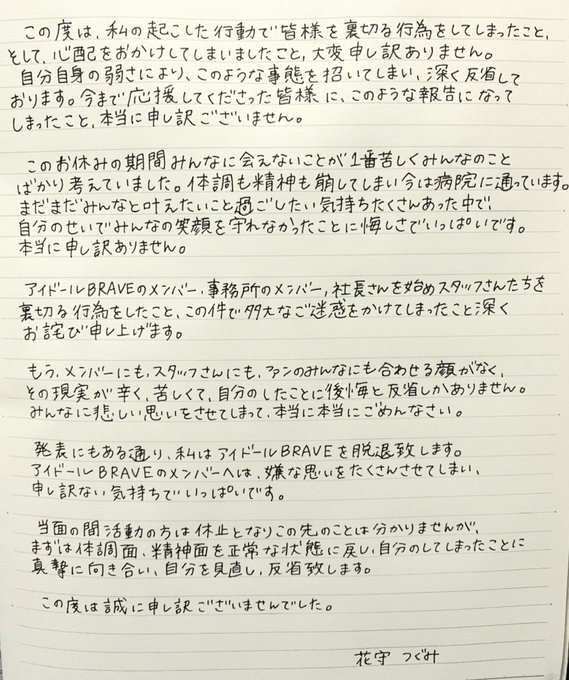 この度は、私の起こした行動で皆様を裏切る行為をしてしまったこと、
そして、心配をおかけしてしまいましたこと、大変申し訳ありません。
自分自身の弱さにより、このような事態を招いてしまい、深く反省して
おります。今まで応援してくださった皆様に、このような報告になって
しまったこと、本当に申し訳ございません。
このお休みの期間みんなに会えないことが1番苦しくみんなのこと
ばかり考えていました。体調も精神も崩してしまい今は病院に通っています。
まだまだみんなと叶えたいこと過ごしたい気持ちたくさんあった中で
自分のせいでみんなの笑顔を守れなかったことに悔しさでいっぱいです。
本当に申し訳ありません。
アイドールBRAVEのメンバー、事務所のメンバー、社長さんを始めスタッフさんたちを
裏切る行為をしたこと、この件で多大なご迷惑をかけてしまったこと深く
お詫び申し上げます。
もう、メンバーにも、スタッフさんにも、ファンのみんなにも合わせる顔がなく、
その現実が辛く、苦しくて、自分のしたことに後悔と反省しかありません。
みんなに悲しい思いをさせてしまって、本当に本当にごめんなさい。
発表にもある通り、私はアイドールBRAVEを脱退致します。
アイドールBRAVEのメンバーへは、嫌な思いをたくさんさせてしまい、
申し訳ない気持ちでいっぱいです。
当面の間活動の方は休止となりこの先のことは分かりませんが、
まずは体調面、精神面を正常な状態に戻し、自分のしてしまったことに
真摯に向き合い、自分を見直し、反省致します。
この度は誠に申し訳ございませんでした。
花守 つぐみ